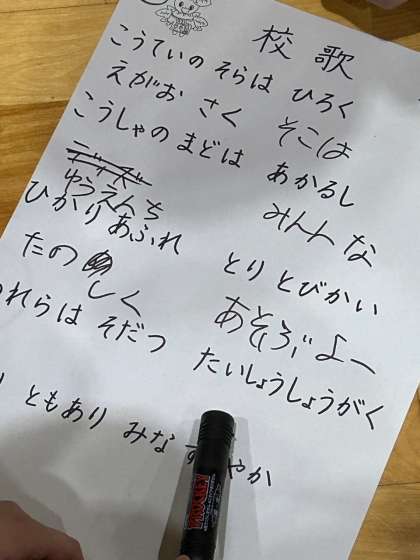 校歌
こうていの そらは ひろく
えがお さく そこは
こうしゃの まどは あかるし
ゆうえんち みんな
ひかり あふれ とりとびかい
たのしく あそぶよー
れらは そだつ たいしょうしょうがく
ともあり みなす やか